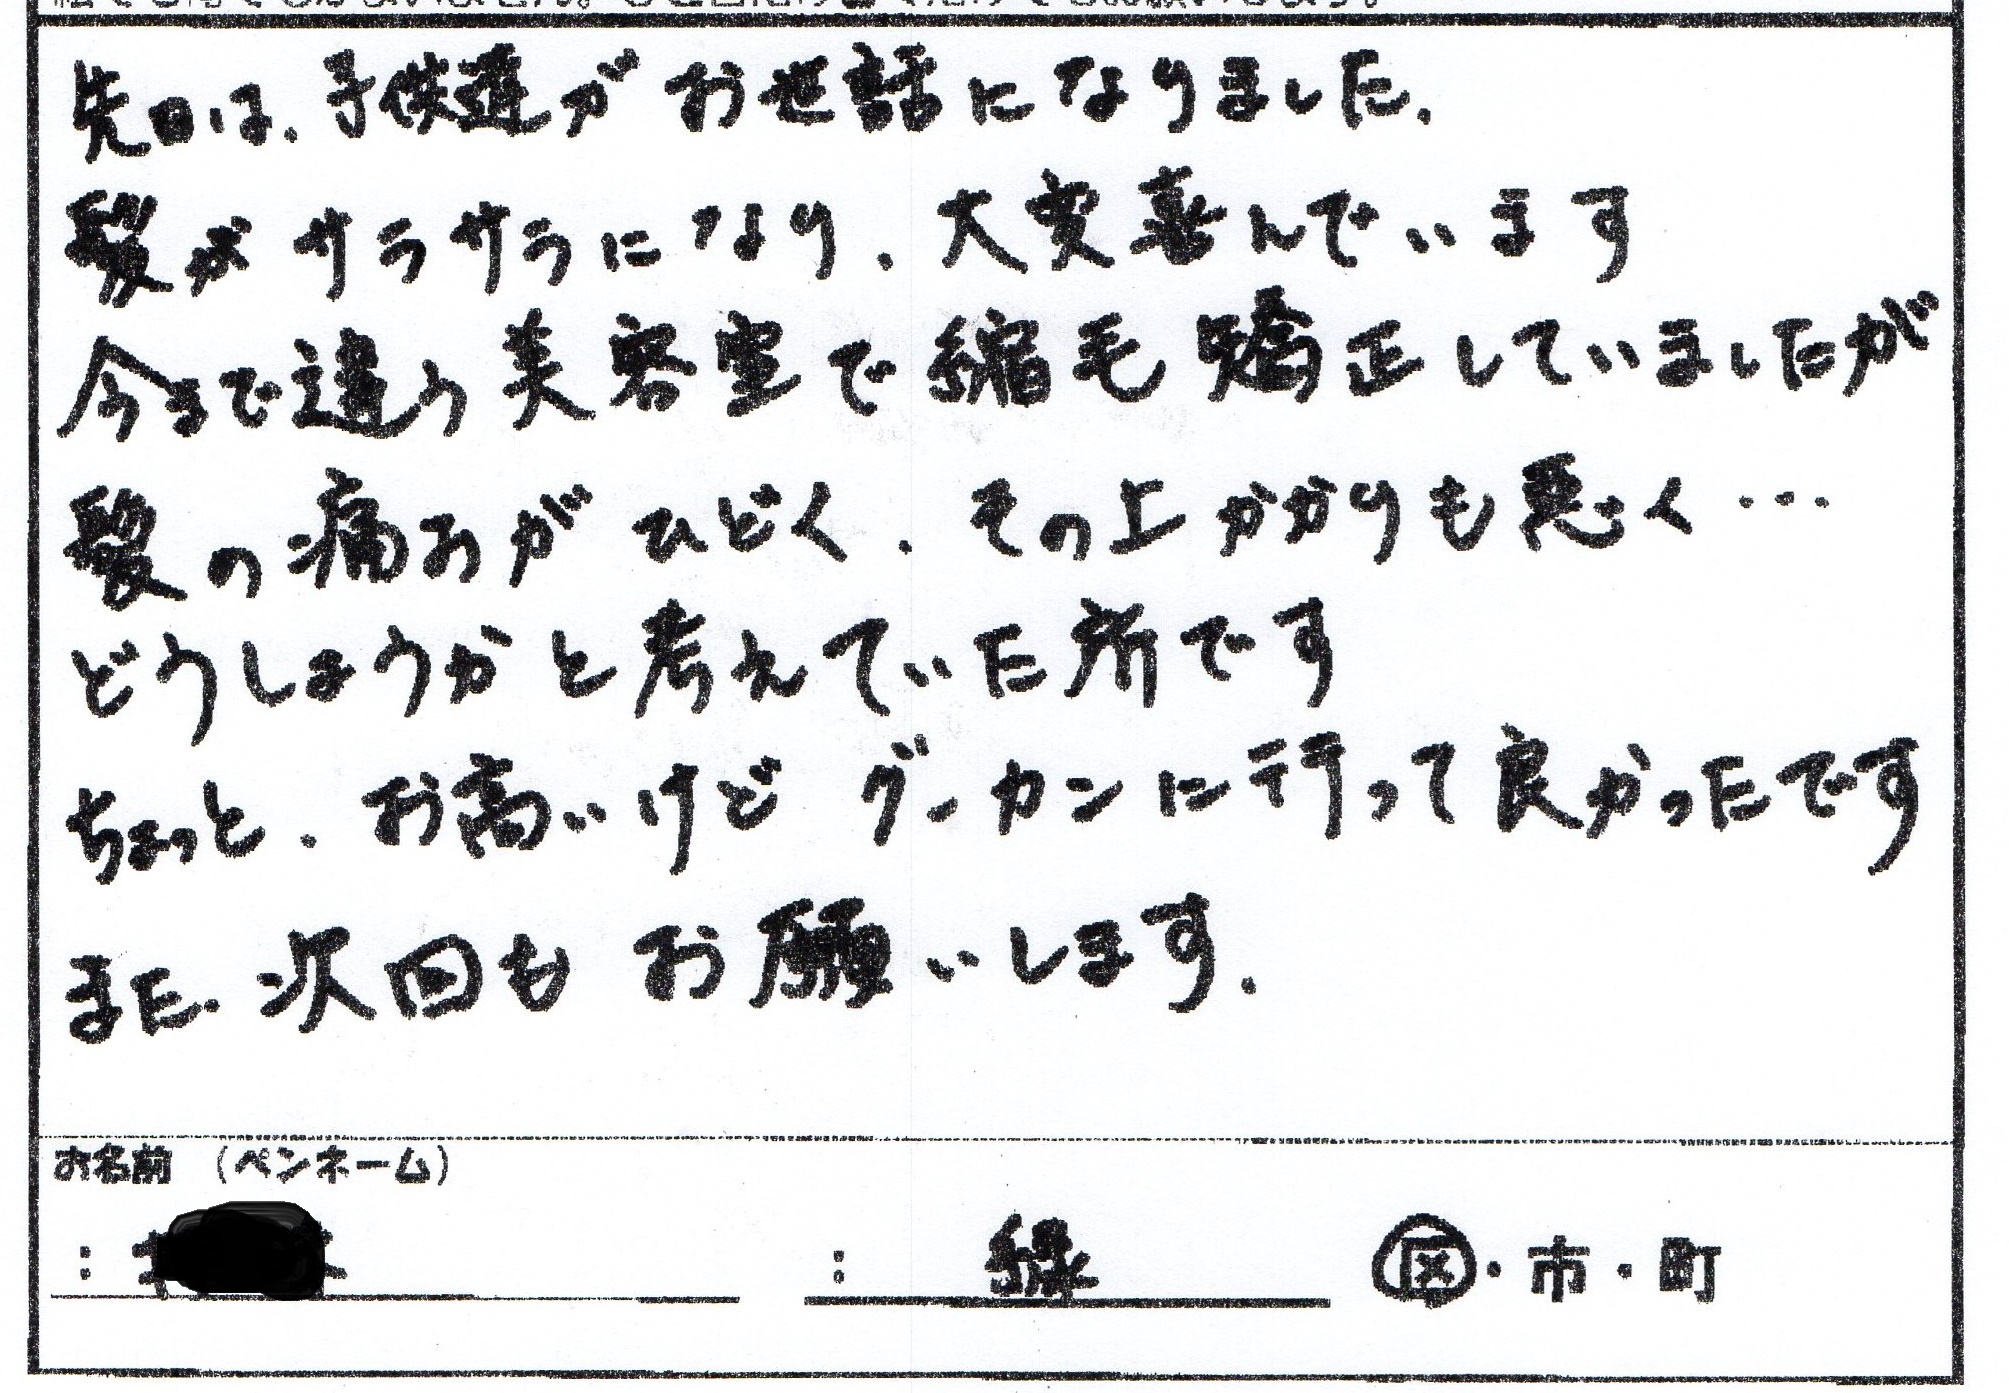 先日は、子供達がお世話になりました。
髪がサラサラになり、大変喜んでいます
今まで違う美容室で縮毛矯正していましたが
髪の痛みがひどく、その上かかりも悪く…
どうしようかと考えていた所です
ちょっと、お高いけどグーカンに行って良かったです
また、次回もお願いします。
お名前（ペンネーム）
： ： 緑 区・市・町